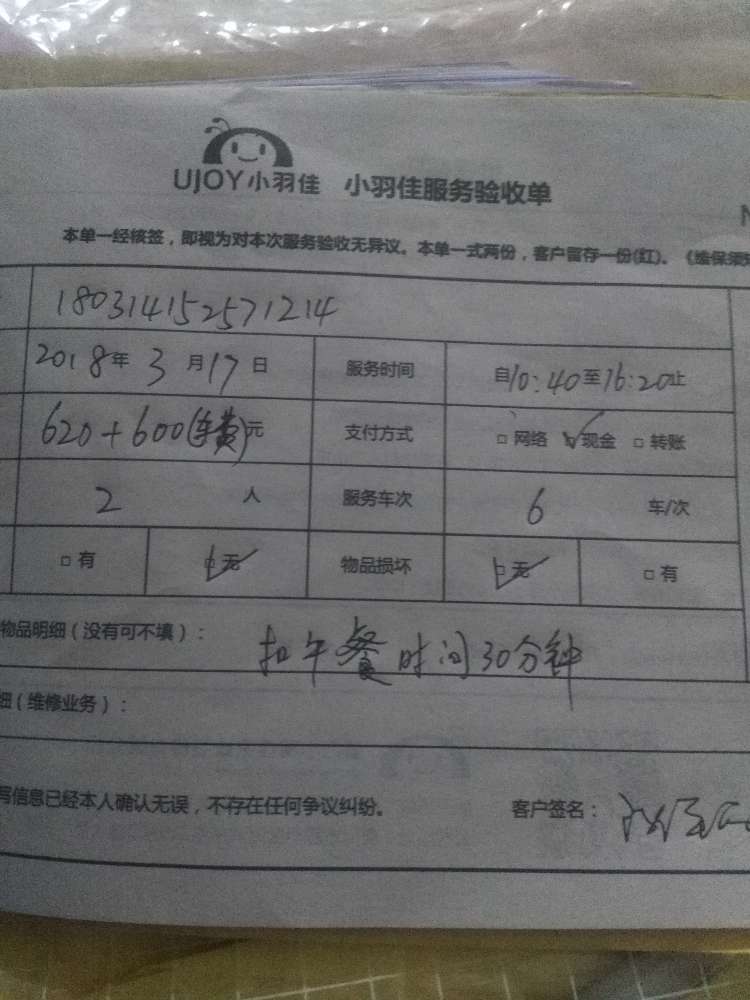 UJOY小羽佳 小羽佳服务验收单
N
本单一经核签，即视为对本次服务验收无异议。本单一式两份，客户留存一份(红)。《维保须知
180314152571214
2018年3月17日 服务时间 自10:40至16:20止
620+600(车费)元 支付方式 □网络 ☑现金 □转账
2人 服务车次 6 车/次
□有 ☑无 物品损坏 ☑无 □有
物品明细（没有可不填）： 扣午餐时间30分钟
细（维修业务）：
写信息已经本人确认无误，不存在任何争议纠纷。 客户签名：